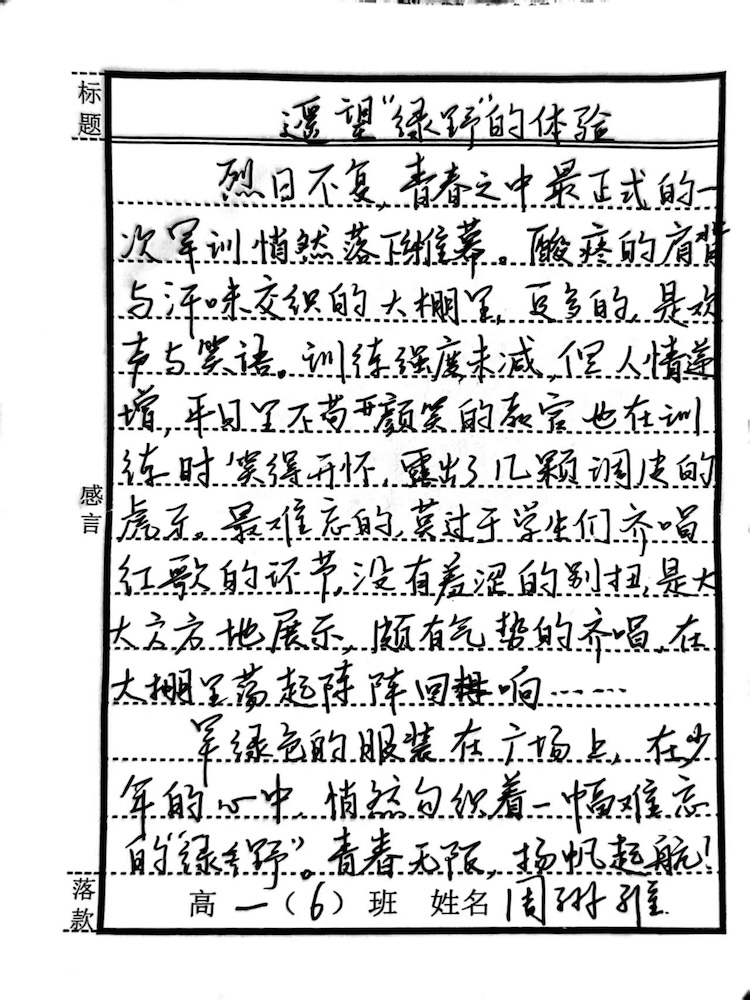 标题
遥望“绿野”的体验
烈日不复，青春之中最正式的一
次军训悄然落下帷幕。酸疼的肩背
与汗味交织的大棚里，更多的，是欢
声与笑语。训练强度未减，但人情递
增，平日里不苟开颜笑的教官也在训
练时笑得开怀，露出了几颗调皮的
感言
虎牙。最难忘的，莫过于学生们齐唱
红歌的环节，没有羞涩的别扭，是大
大方方地展示，颇有气势的齐唱，在
大棚里荡起阵阵回响……
军绿色的服装在广场上，在少
年的心中，悄然勾织着一幅难忘
的“绿野”。青春无限，扬帆起航！
落款
高一（6）班 姓名 周琳雅